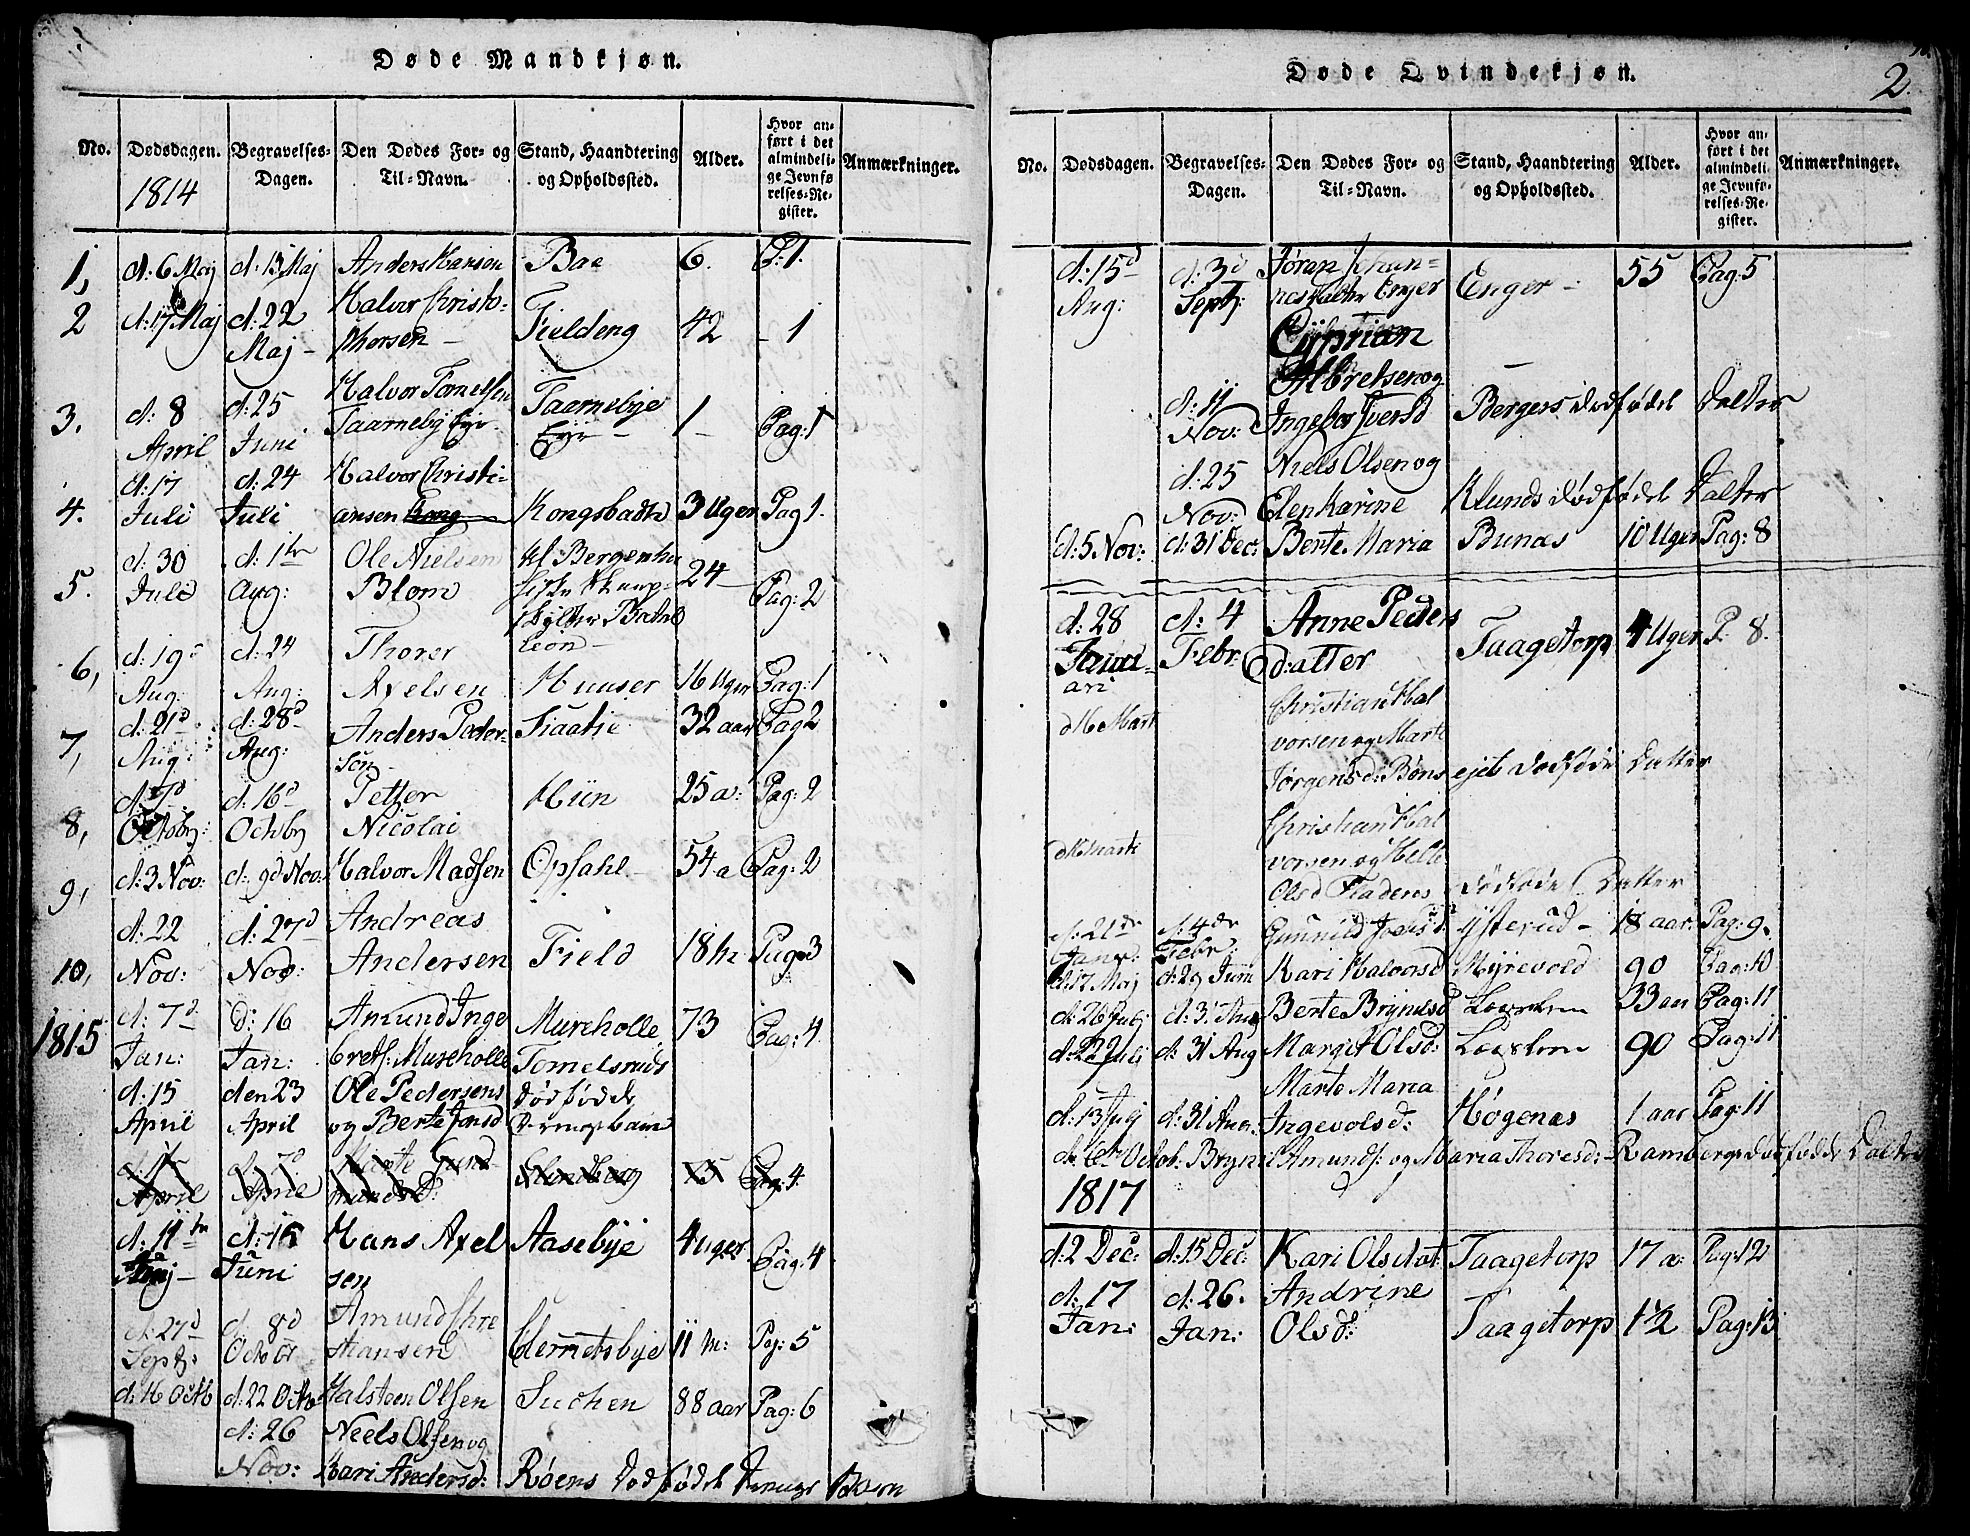 Døde Mandkjøn.
No. Dødsdagen. Begravelses-Dagen. Den Dødes For- og Til-Navn. Stand, Haandtering og Opholdssted. Alder. Hvor anført i det almindelige Jevnførelses-Register. Anmærkninger.
1814
1, d: 6 Maj d: 13 Maj Anders Hansen Bae 6. P: 1.
2 d: 17 Maj d: 22 Maj - Halvor Christophorsen - Fieldeng 42 - 1
3. d: 8 April d: 25 Juni Halvor Tomesen Taarneby Eje Taarnebye Eje - 1 - Pag: 1
4. d: 17 Juli d: 24 Juli Halvor Christiansen Kongsbadh 3 Uger Pag 1.
5. d: 30 Juli d: 1ste Aug: Ole Nielsen Blom 24 Pag: 2
6, d: 19d Aug: d: 24 Aug: Thorer Axelsen Huuser 16 Uger Pag: 1
7, d: 21d Aug: d: 28d Aug: Anders Pedersøn Fiaatie 32 aar Pag 2
8, d: 7d Octobr: d: 16d Octobr Petter Nicolai Hiin 25 a: Pag: 2
9, d: 3 Nov: d: 9d Nov: Halvor Madsen Opsahl - 54 a Pag: 2
10, d: 22 Nov: d: 27d Nov: Andreas Andersen Field 18 Pag: 3
1815 d: 7d Jan: d: 16 Jan: Amund Ingebretss: Mureholle Mureholle 73 Pag: 4.
d: 15 April den 23 April Ole Pedersens og Berte Jonsd Tomelsruds dødfødde Drengebarn
April April Marte Gundmundsd: Pag: 4
d: 11te Maj - d: 15 Juni Hans Axelsen Aasebye 4 uger Pag: 4
d: 27d Septr: d: 8d Octobr Amund Christiansen Clemmetsbye 11 M: Pag: 5
d: 16 Octb d: 22 Octb: Halsteen Olsen Suchen 88 aar Pag: 6
d: 26 Nov: Neels Olsen og Kari Andersd: Røens Dødfødde Drenge Barn
Døde Qvindekjøn.
2.
No. Dødsdagen. Begravelses-Dagen. Den Dødes For- og Til-Navn. Stand, Haandtering og Opholdssted. Alder. Hvor anført i det almindelige Jevnførelses-Register. Anmærkninger.
d: 15d Aug: d: 3d Septr: Jøran Johannesdatter Enger Enger - 55 Pag: 5
d: 11 Nov: Cyprian Albretsen og Ingebor Iversd Bergers dødfødde Datter
d: 25 Nov: Niels Olsen og Elen Karine Klunds dødfødde Datter
d: 5 Nov: d: 31 Dec: Berte Maria Bunæs 10 Uger Pag: 8
d: 28 Januari d: 4 Febr: Anne Peders Datter Taagetorp 4 Uger P. 8.
d 16 Marti Christian Halvorsen og Marte Jørgensd: Bøns ejets dødføde Datter
Marti Christian Halvorsen og Helle Olsd Fladens dødføde Datter
d: 21de Janr: d: 4de Febr: Gunnild Joensd: Ysterud - 18 aar: Pag: 9.
d: 17 Maj d: 29 Juni Kari Halvorsd Myrevold 90 Pag: 10
d: 26 Julj d: 31 Aug Berte Brynilsd 33 aar Pag: 11
d: 22 Juli d: 31 Aug Marget Olsd: 90 Pag: 11
d: 13 Julj d: 31 Aug. Marte Maria Ingevolsd: Høgenæs 1 aar Pag: 11
d: 6te Octob: Brynil Amunds: og Maria Thoresd: - Rambergs dødfødde Datter
1817
d: 2 Dec: d: 15 Dec: Kari Olsdat Taagetorp 17 a: Pag: 12
d: 17 Jan: d: 26. Jan: Andrine Olsd: Taagetorp 1 1/2 Pag: 13